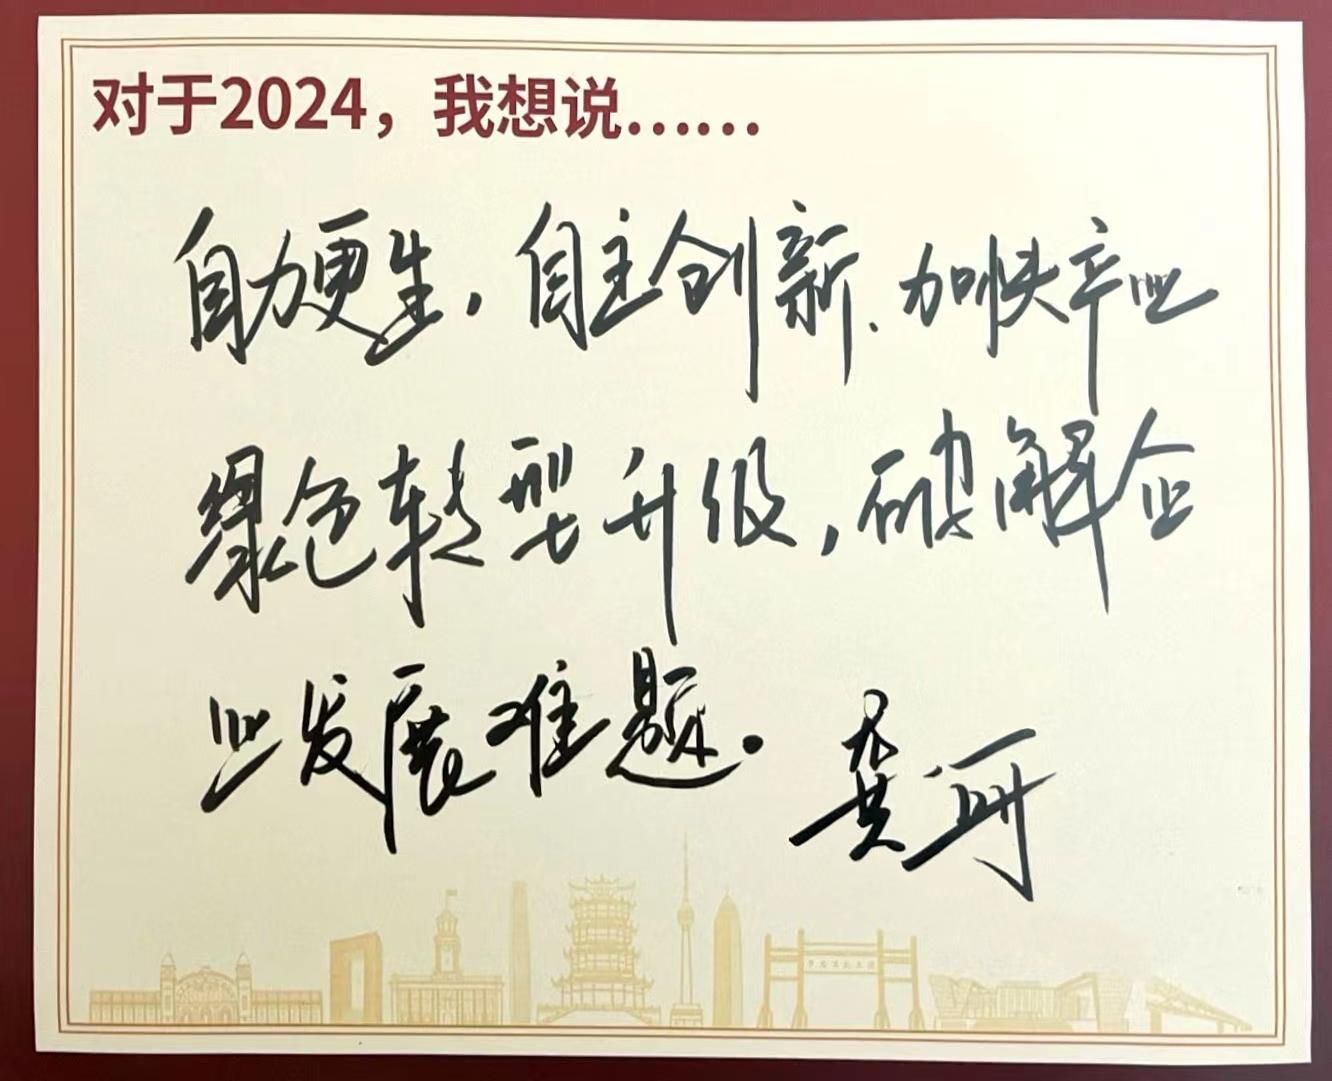 对于2024，我想说……
自力更生，自主创新、加快产业
绿色转型升级，破解企
业发展难题。
龚